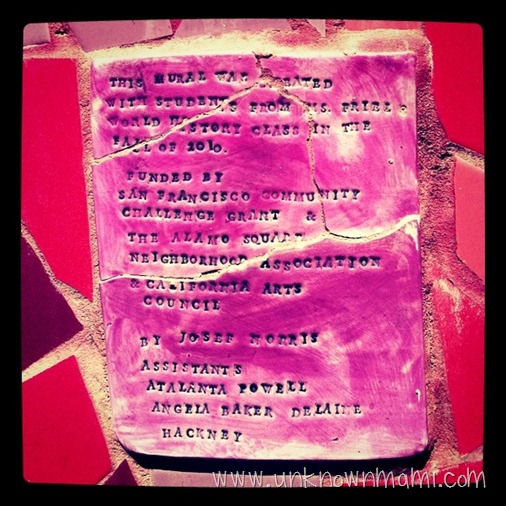 THIS MURAL WAS CREATED
WITH STUDENTS FROM MS. PRIEL
WORLD HISTORY CLASS IN THE
FALL OF 2010.
FUNDED BY
SAN FRANCISCO COMMUNITY
CHALLENGE GRANT &
THE ALAMO SQUARE
NEIGHBORHOOD ASSOCIATION
& CALIFORNIA ARTS
COUNCIL
BY JOSEF NORRIS
ASSISTANTS
ATALANTA POWELL
ANGELA BAKER DELAINE
HACKNEY
www.unknownmami.com